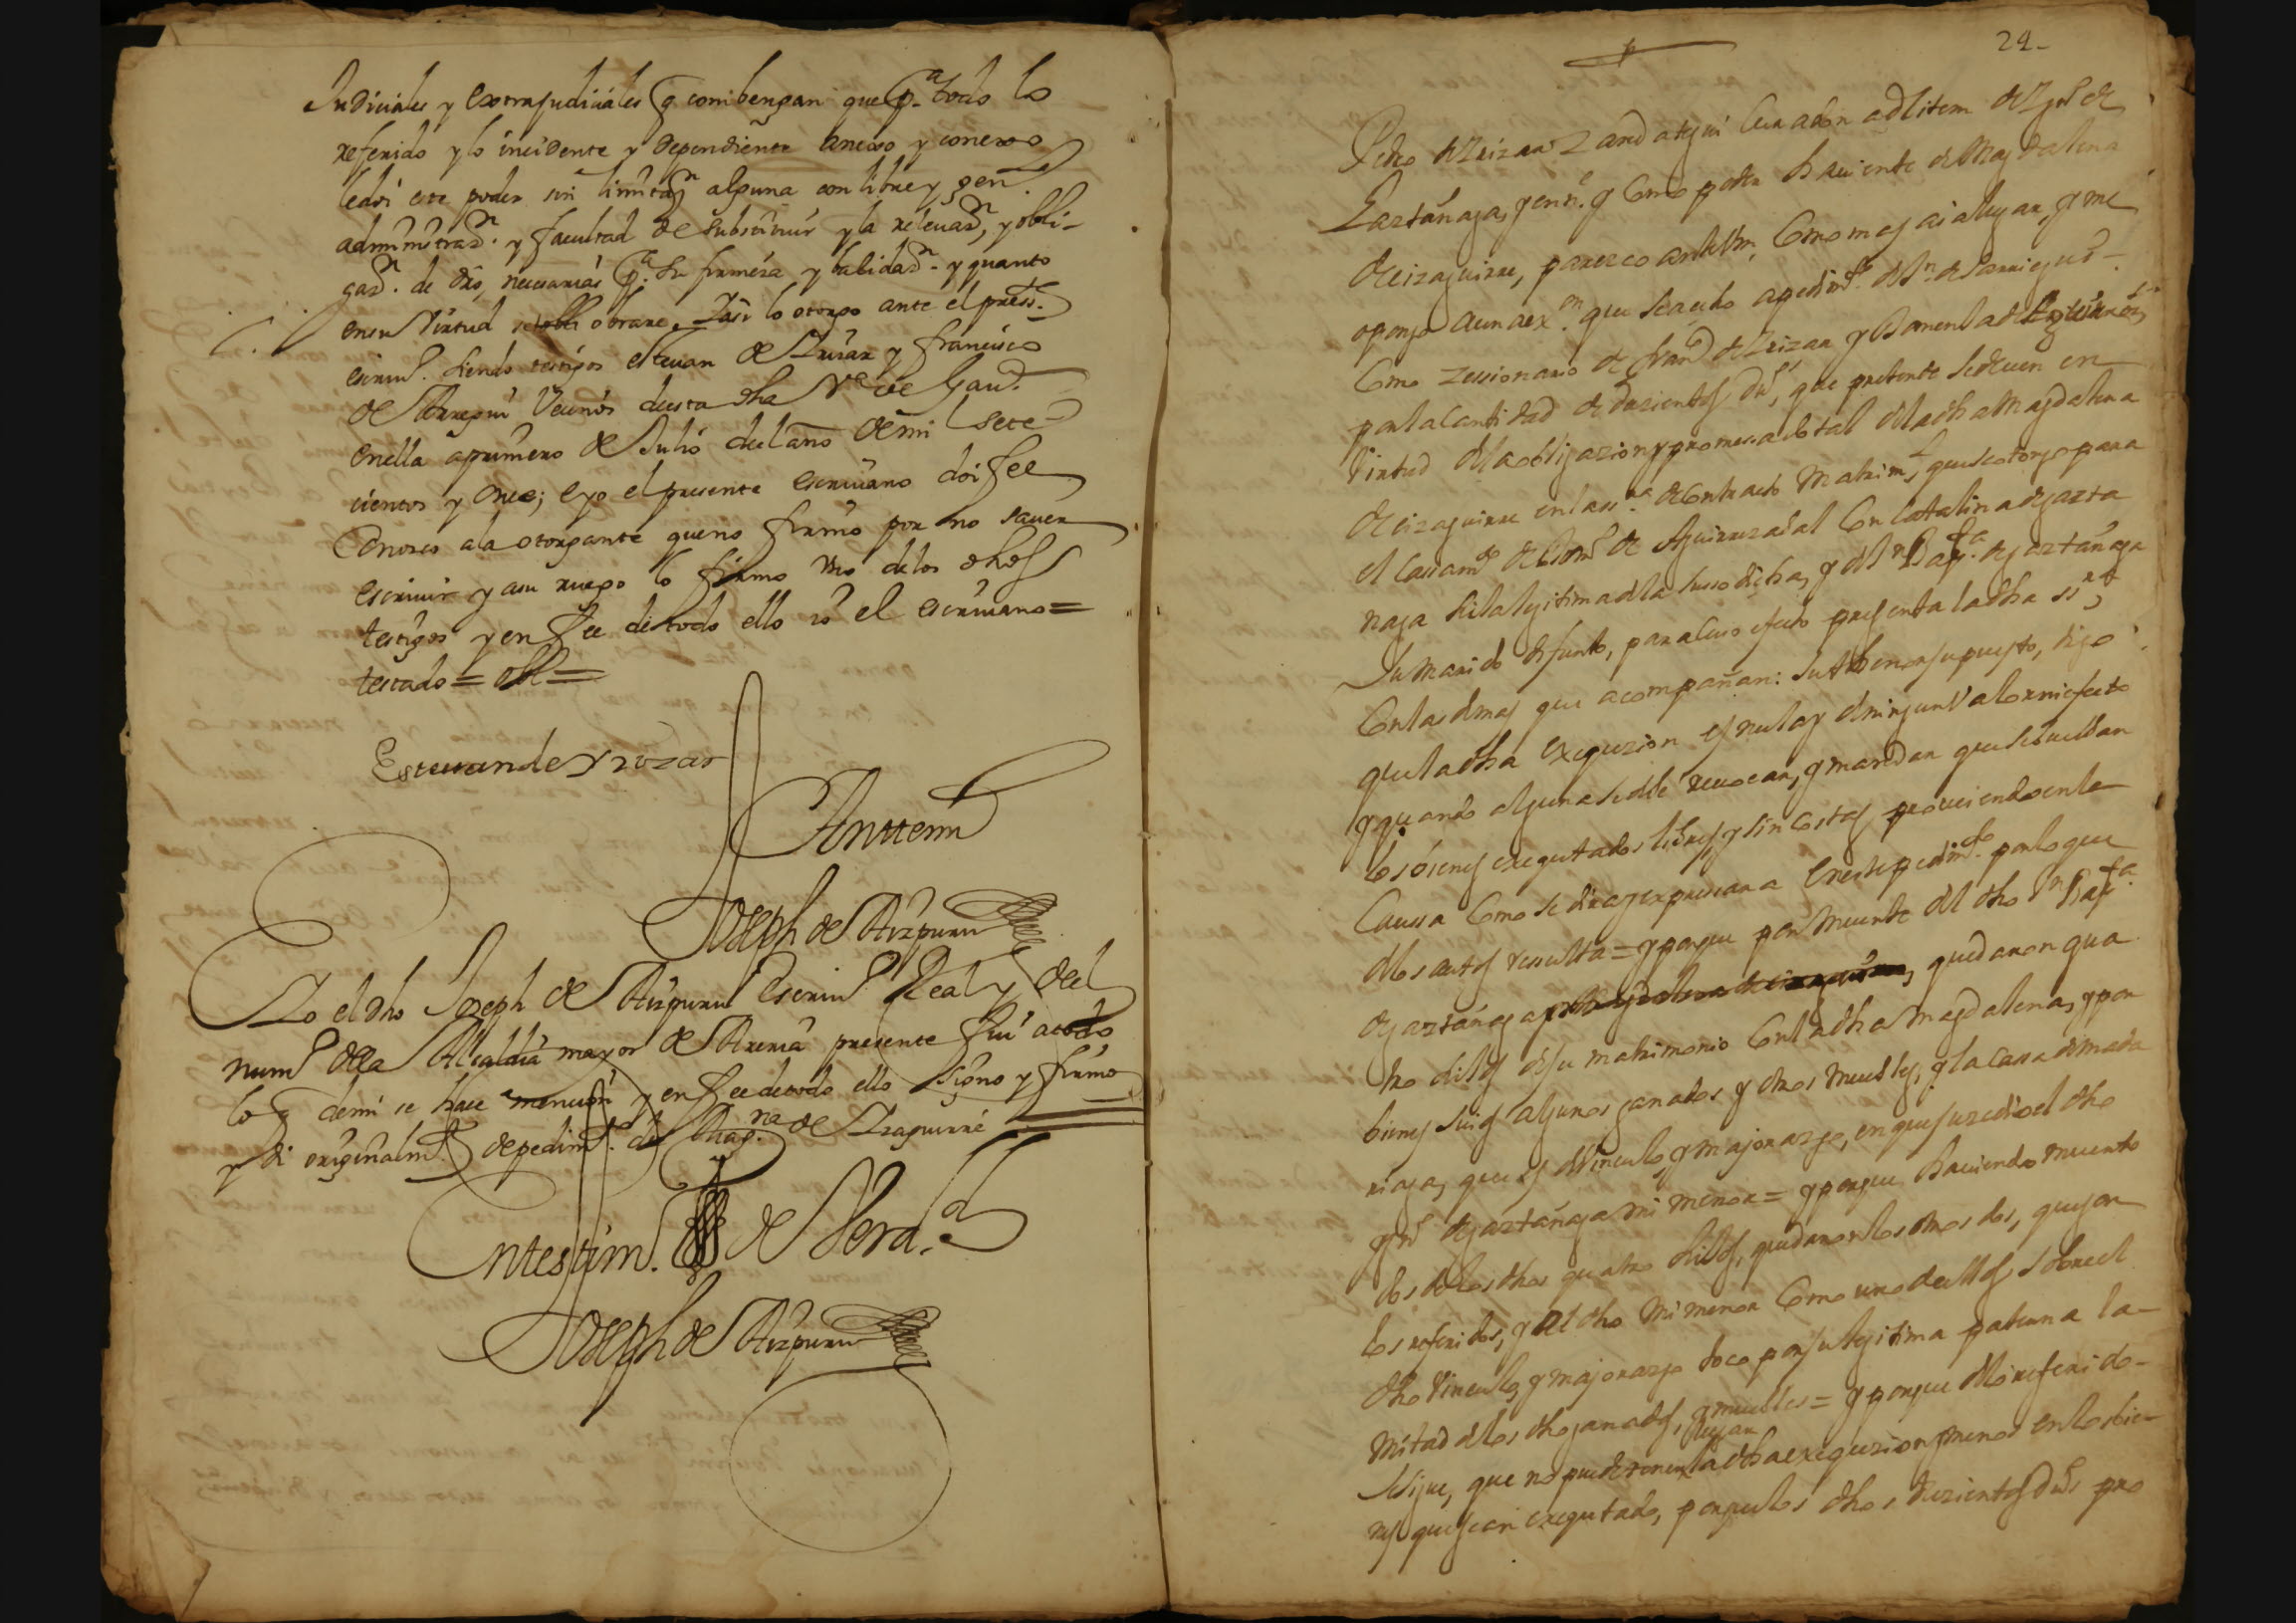 Judiciales y extrajudiciales q combengan que p.ª todo lo
referido y lo incidente y dependiente anexso y conexso
ledoi este poder sin limitaon alguna con libre y gen.l
administraon. y facultad de substituir y la releuaon, y obli-
gaon. de dro, necesarias p.ª su firmeza y balidaon. y quanto
en su Virtud obrare. Y asi lo otorgo ante el press.te
escriuo. siendo testigos esteuan de Yruzar y francisco
de Arregui Vecinos de esta dha Ve de Gaua.
en ella a primero de Julio del año de mil sete-
cientos y once; e yo el presente escriuano doi fee
Conozco a la otorgante que no firmo por no sauer
escriuir y asu ruego lo firmo Vno de los dhos
testigos y en fee de todo ello yo el escriuano =
testado = obl =
Esteuan de Yruzar
Antemi
Joseph de Aizpuru
Yo el dho Joseph de Aizpuru Escriuo Real y del
numo de la Alcaldia mayor de Areria presente fui atodo
lo q demi se hace mencion y en fee de todo ello signo y firmo
y di originalmte de pedimto. de Mag.na de Yzaguirre
En testimo. de Verd.ad
Joseph de Aizpuru
24-
Pedro de Yrizar Zandategui Curador adlitem de Ygnº de
Gaztañaga, menr. y Como poder haviente de Magdalena
de eizaguirre, parezco ante Vm, Como mas aia lugar, y me
opongo a una exon. que se a echo a pedimto. de
Como Zessionario de franco de Yrizar y
por la Cantidad de duzientos dus, que pretende se deuen en
Virtud de la obligazion y promesa dotal de la dha Magdalena
de eizaguirre en la ess.ra de Contracto Matriml, que se otorgo para
el Cassamto de de Aguirrezaual Con Catalina de gazta
ñaga hila legitima de la sussodicha, y del Bap.ta de gaztañaga
su marido difunto, para cuio efecto presenta la dha
Con las demas que acompañan: su thenor supuesto, digo
que la dha exequzion es nula y de ningun Valor ni efecto
y quando alguna se deue reuocar, y mandar que se bueluan
los bienes executados libres y sin Costas proueiendo en la
Caussa Como se dira y expressara en este pedimto. por lo que
de los autos ressulta = y porque por muerte del dho Bap.ta
de gaztañaga, quedaron qua
tro hilos de su matrimonio Con la dha Magdalena, y por
bienes suios algunos ganados y otros muebles, y la Cassa de mada
riaga, que es de Vinculo y majorazgo, en que suzedio el dho
Ygnº de gaztañaga mi menor = y porque haviendo muerto
los dos de los dhos quatro hilos, quedaron los otros dos, que son
los referidos, y al dho mi menor Como uno de ellos sobre el
dho Vinculo y majorazgo toco por su legitima paterna la-
mitad de los dhos ganados, y muebles = y porque de lo referido-
se sigue, que no puede tener lugar la dha exequzion y menos en los bie-
nes que se an executado, porque los dhos duzientos dus pro